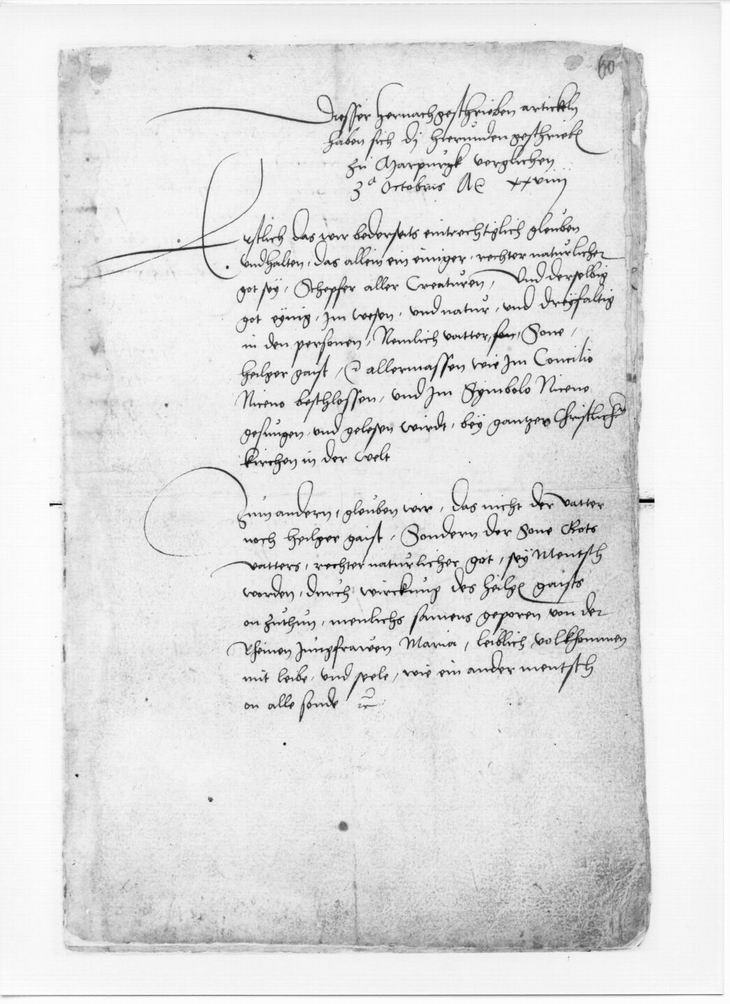 60
Diesser hernachgeschrieben artickeln
haben sich dj hierunden geschrieben
zu Marpurgk verglichen
3ª Octobris Aº xxviiij
Erstlich das wir bederseits eintrechtiglich gleuben
und halten, das allein ein einiger, rechter naturlicher
got sey, Schepfer aller Creaturen, Und derselbig
got eynig, Im wesen, und natur, und dreyfaltig
in den personen, Nemlich vatter, Sone,
heilger gaist, etc allermassen wie Im Concilio
Niceno beschlossen, und Im Symbolo Niceno
gesungen und gelesen wirdt, bey gantzer Christlicher
kirchen in der welt
Zum andern, gleuben wir, das nicht der vatter
noch heilger gaist, Sondern der Sone Gots
vatters, rechter naturlicher got, sey Mentsch
worden, durch wirckung des heilgen gaists
on zuthun, menlichs samens geporen von der
Rheinen Jungfrawen Maria, leiblich volkhommen
mit leibe, und seele, wie ein ander mentsch
on alle sonde etc